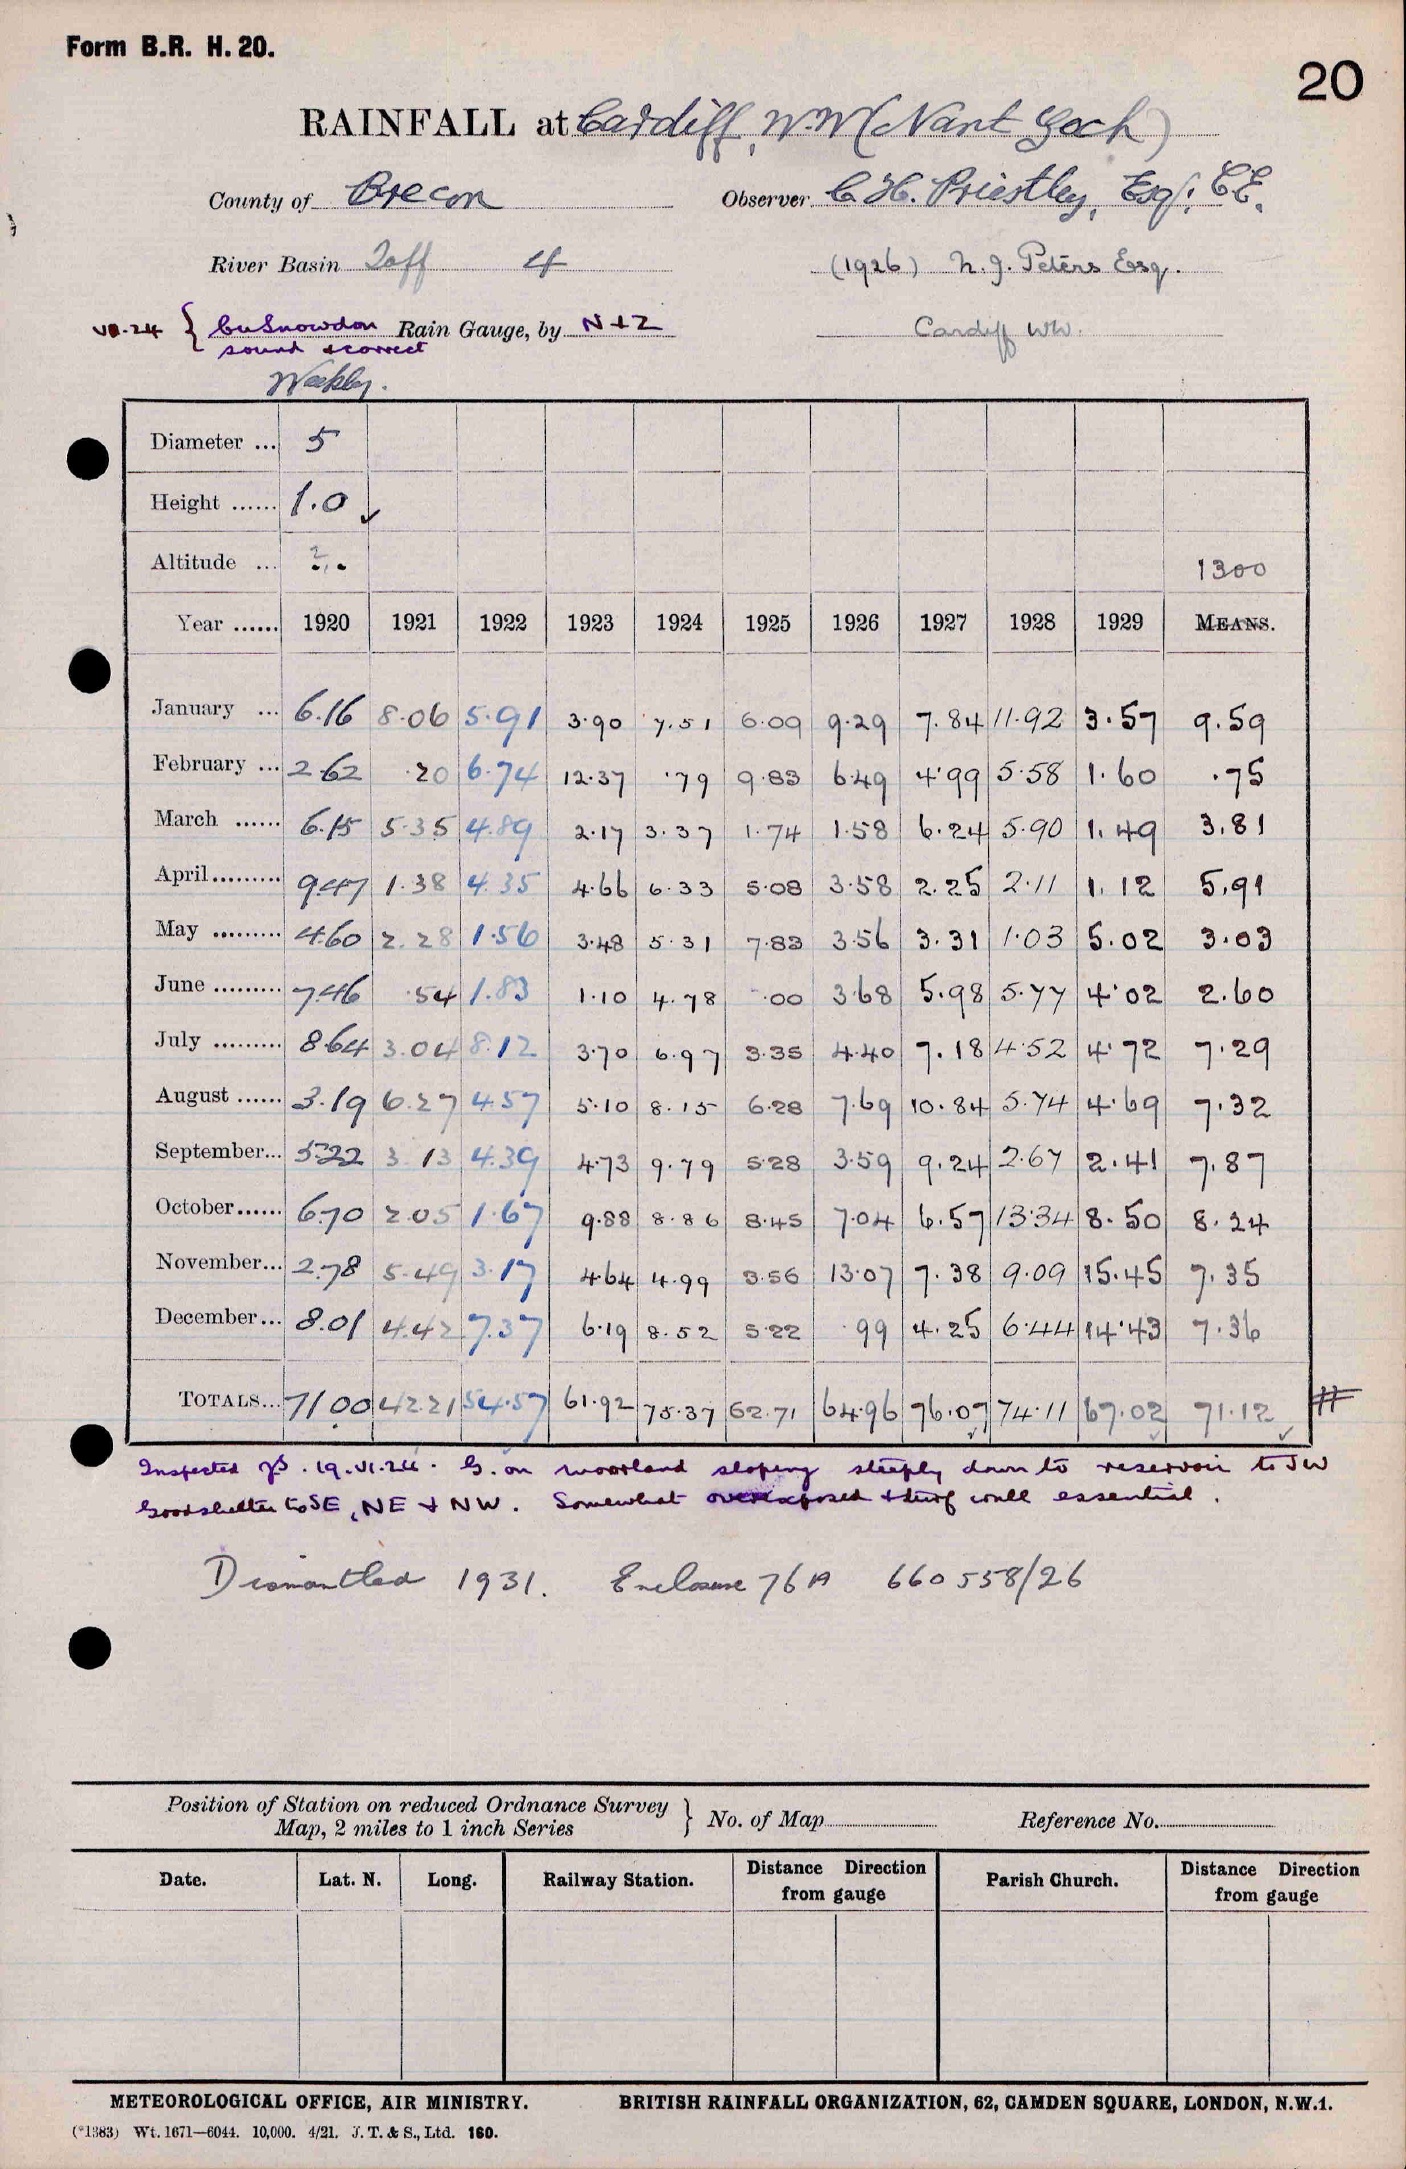 Form B.R. H. 20.
20
RAINFALL at Cardiff, W.W (Nant Goch)
County of Brecon Observer C. H. Priestley, Esq; C.E.
River Basin Taff 4 (1926) N. J. Peters Esq.
VI.24 { Cu Snowdon Rain Gauge, by N+Z Cardiff WW.
sound & correct
Weekly.
Diameter ... 5
Height ...... 1.0 ✓
Altitude ... ? 1300
Year ...... 1920 1921 1922 1923 1924 1925 1926 1927 1928 1929 MEANS.
January ... 6.16 8.06 5.91 3.90 7.51 6.09 9.29 7.84 11.92 3.57 9.59
February ... 2.62 .20 6.74 12.37 .79 9.83 6.49 4.99 5.58 1.60 .75
March ...... 6.15 5.35 4.89 2.17 3.37 1.74 1.58 6.24 5.90 1.49 3.81
April ......... 9.47 1.38 4.35 4.66 6.33 5.08 3.58 2.25 2.11 1.12 5.91
May ......... 4.60 2.28 1.56 3.48 5.31 7.83 3.56 3.31 1.03 5.02 3.03
June ......... 7.46 .54 1.83 1.10 4.78 .00 3.68 5.98 5.77 4.02 2.60
July ......... 8.64 3.04 8.12 3.70 6.97 3.35 4.40 7.18 4.52 4.72 7.29
August ...... 3.19 6.27 4.57 5.10 8.15 6.28 7.69 10.84 5.74 4.69 7.32
September... 5.22 3.13 4.39 4.73 9.79 5.28 3.59 9.24 2.67 2.41 7.87
October...... 6.70 2.05 1.67 9.88 8.86 8.45 7.04 6.57 13.34 8.50 8.24
November... 2.78 5.49 3.17 4.64 4.99 3.56 13.07 7.38 9.09 15.45 7.35
December... 8.01 4.42 7.37 6.19 8.52 5.22 .99 4.25 6.44 14.43 7.36
TOTALS... 71.00 42.21 54.57 61.92 75.37 62.71 64.96 76.07 74.11 67.02 71.12 #
Inspected . 19.VI.24. G. on moorland sloping steeply down to reservoir to SW
Good shelter to SE, NE & NW. Somewhat overexposed & turf wall essential.
Dismantled 1931. Enclosure 76A 660558/26
Position of Station on reduced Ordnance Survey } No. of Map Reference No.
Map, 2 miles to 1 inch Series
Date. Lat. N. Long. Railway Station. Distance Direction from gauge Parish Church. Distance Direction from gauge
METEOROLOGICAL OFFICE, AIR MINISTRY. BRITISH RAINFALL ORGANIZATION, 62, CAMDEN SQUARE, LONDON, N.W.1.
(*1383) Wt. 1671—6044. 10,000. 4/21. J. T. & S., Ltd. 160.